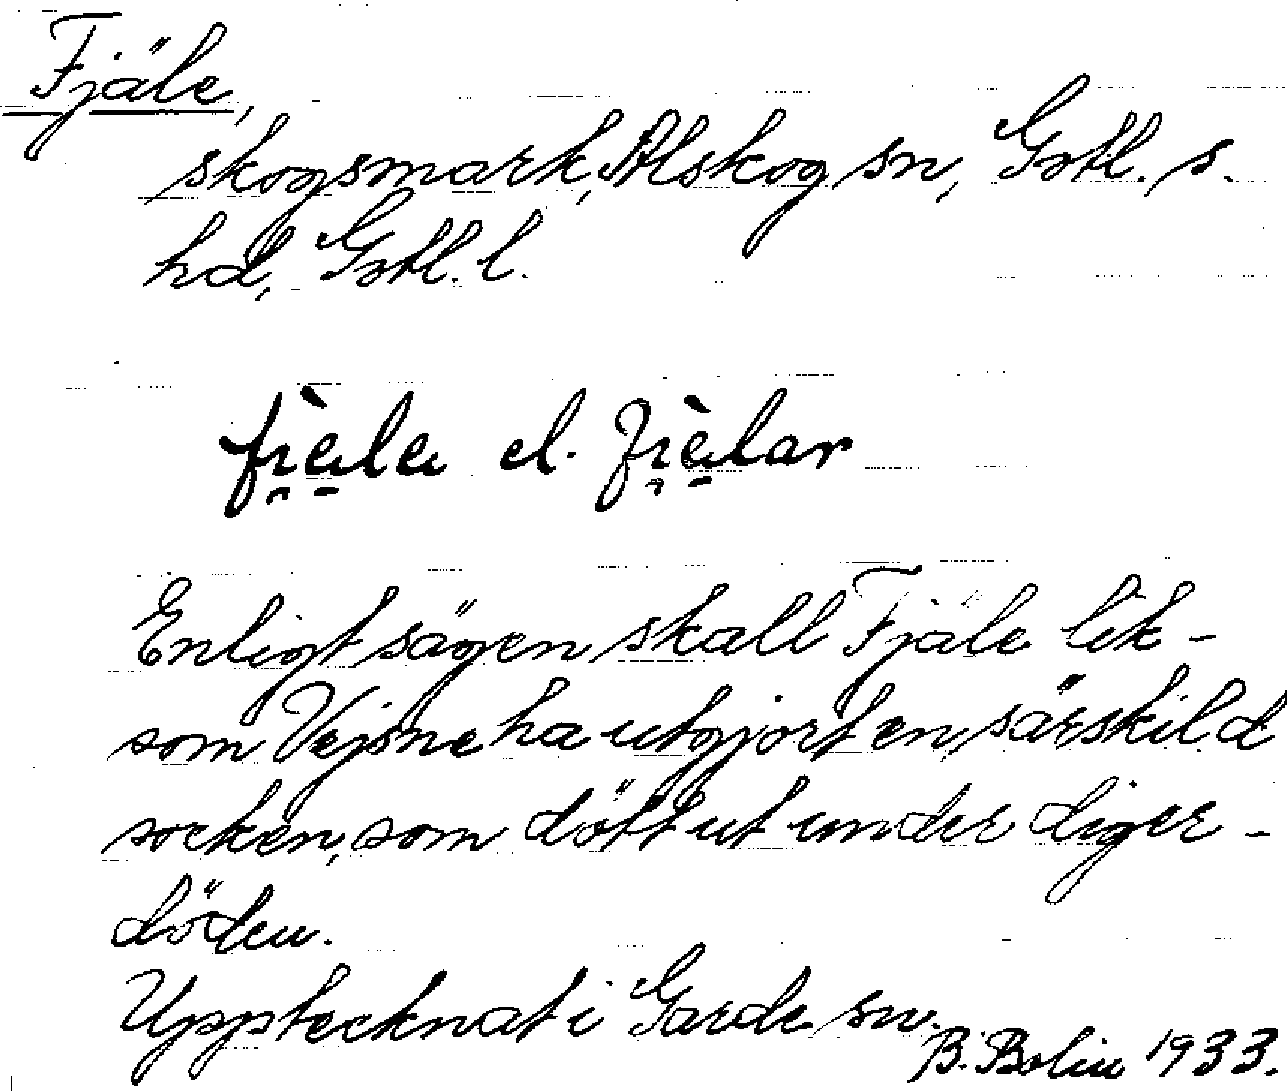 Fjäle,
skogsmark, Alskog sn, Gotl. s.
hd, Gotl. l.
el.
Enligt sägen skall Fjäle lik-
som Vejsne ha utgjort en särskild
socken, som dött ut under diger-
döden.
Upptecknat i Garde sn.
B. Bolin 1933.